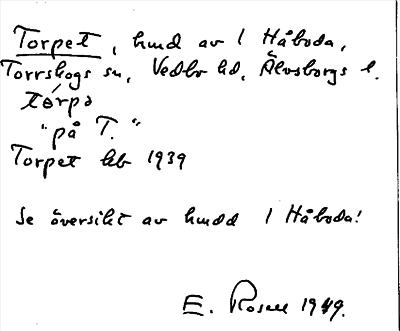 Torpet, hmd av 1 Håboda,
Torrskogs sn, Vedbo hd, Älvsborgs l.
tórpə
"på T."
Torpet kb 1939
Se översikt av hmdd 1 Håboda!
E. Rosell 1949.